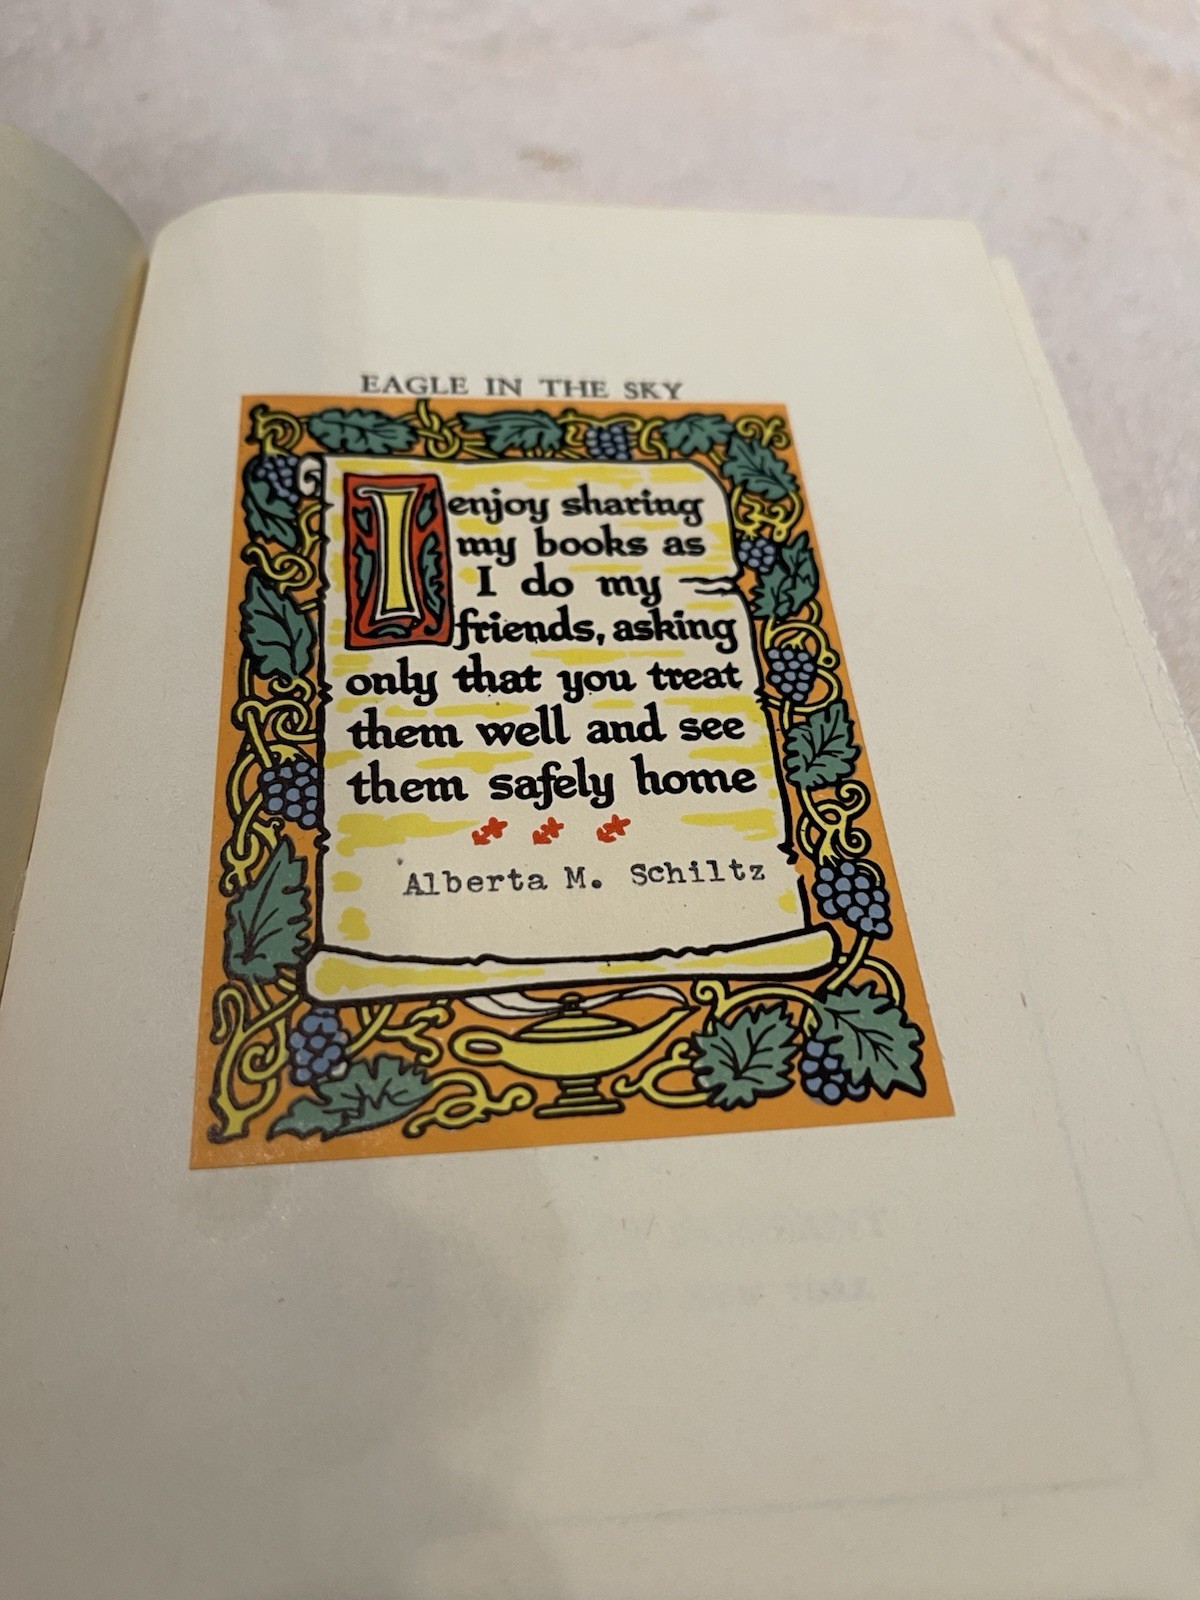 EAGLE IN THE SKY
I enjoy sharing
my books as
I do my
friends, asking
only that you treat
them well and see
them safely home
Alberta M. Schiltz